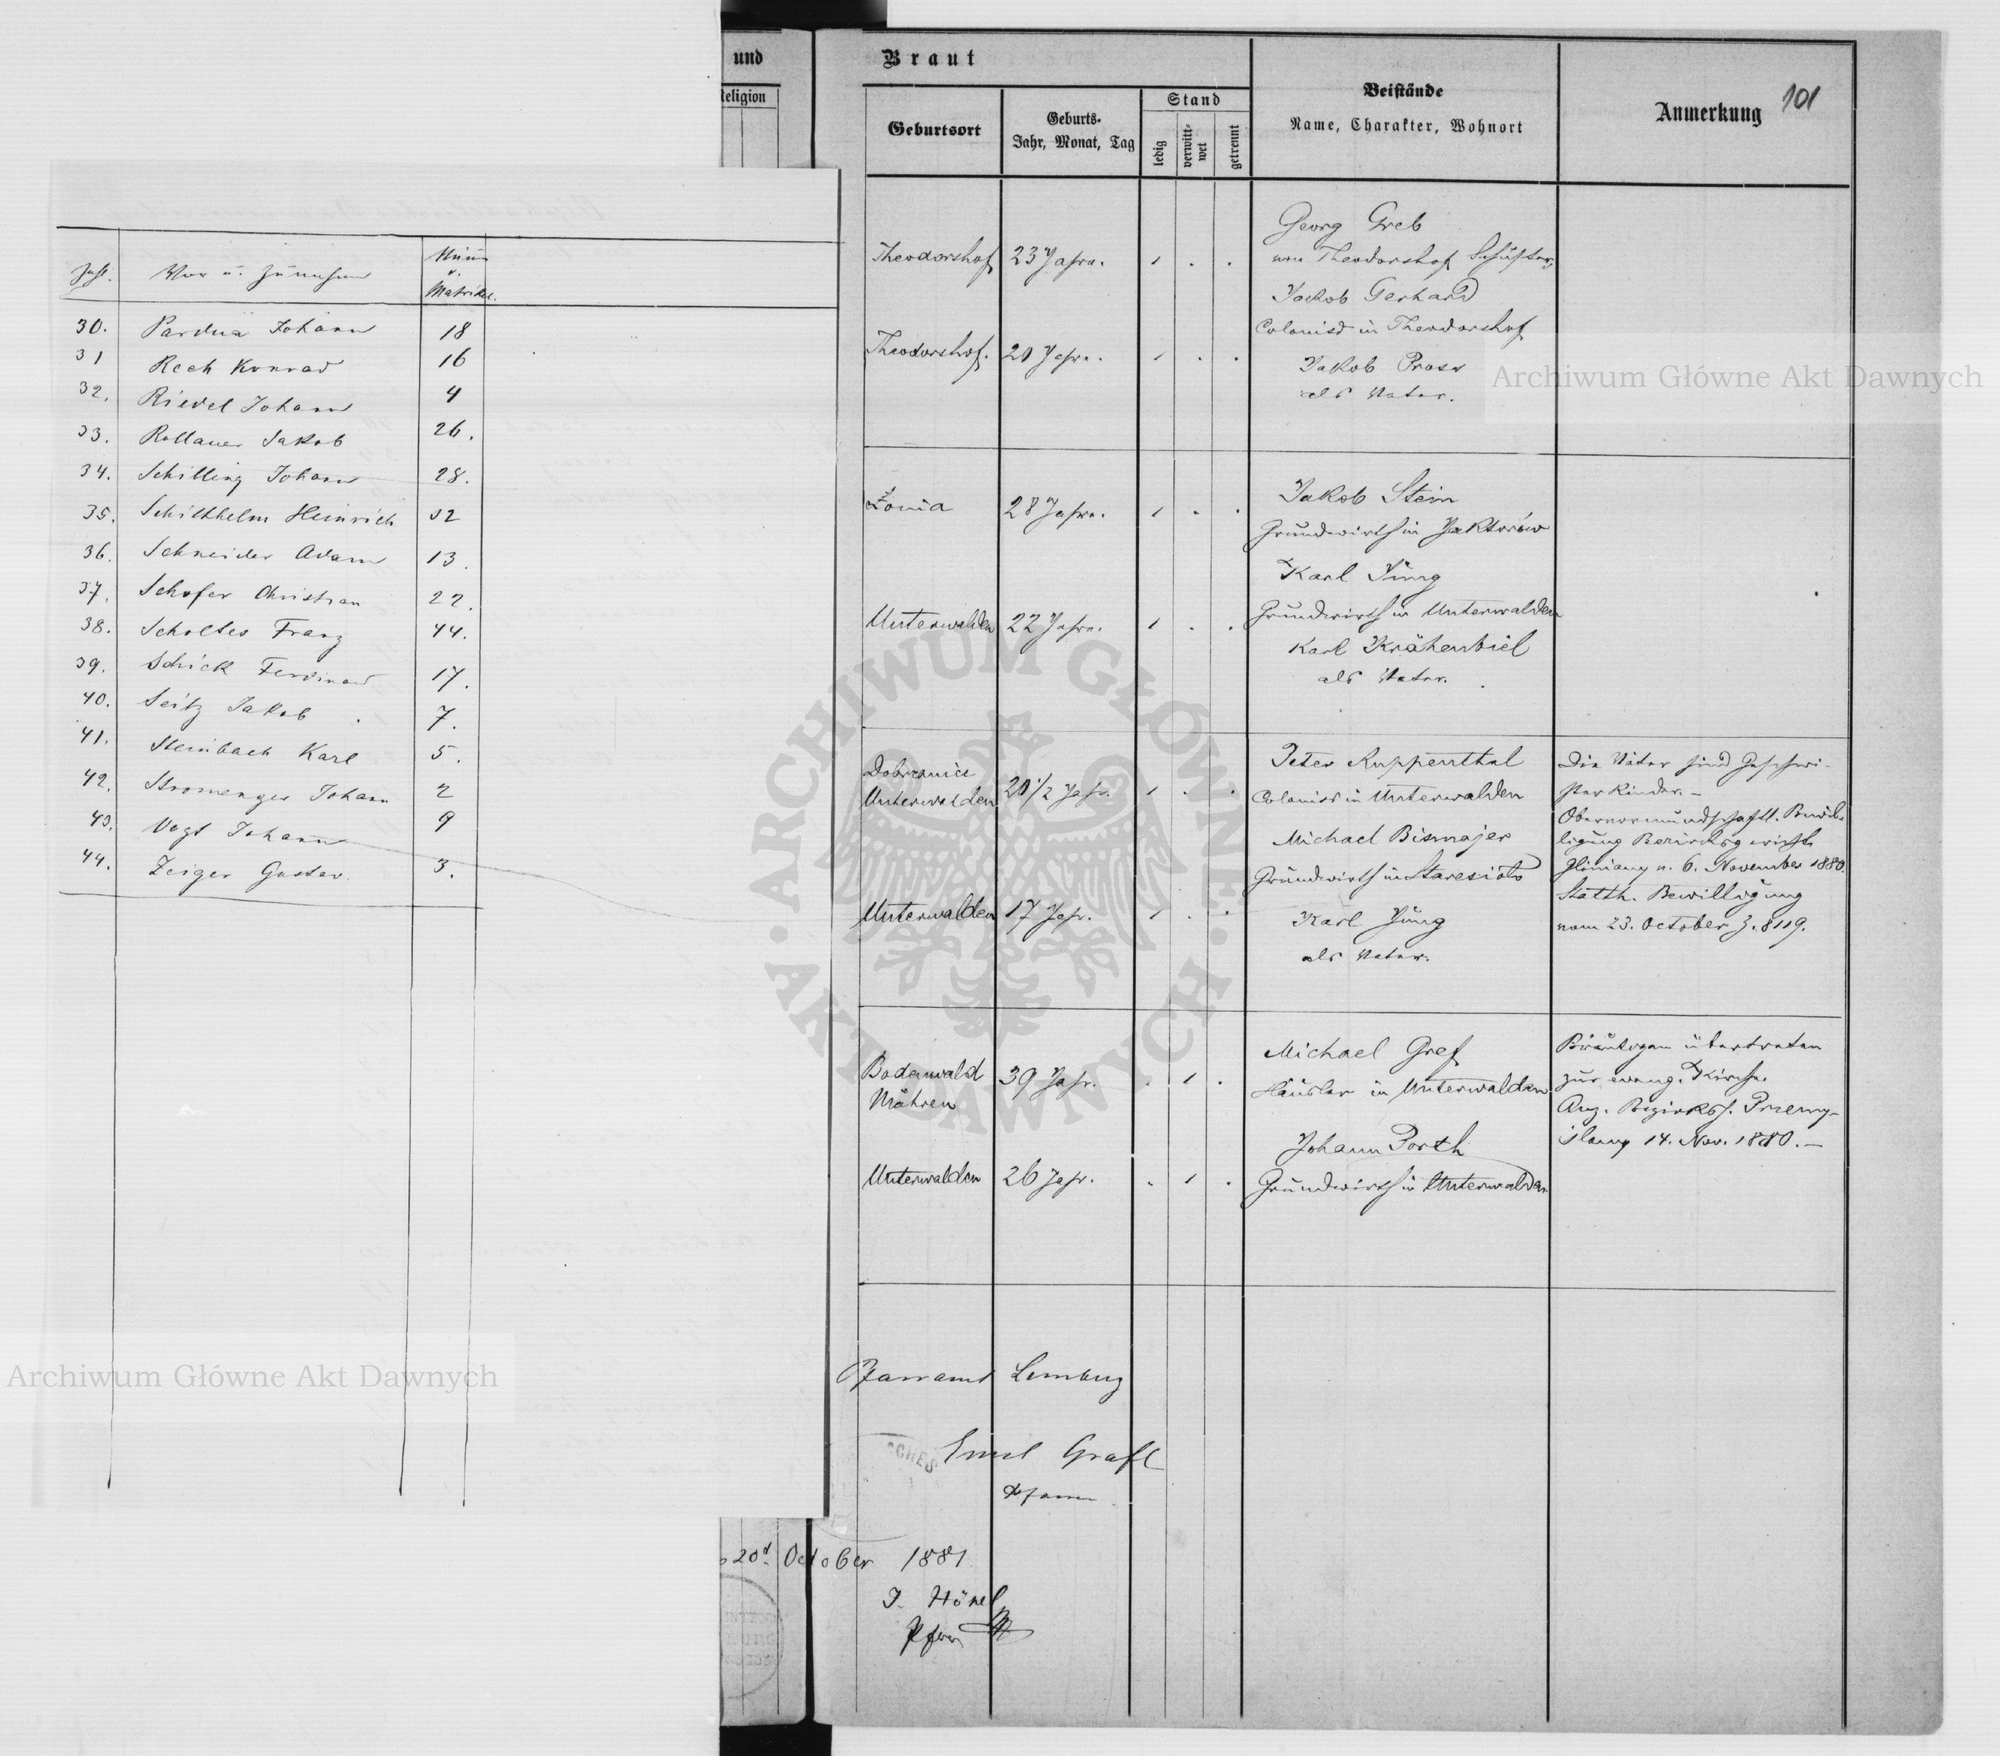 Zahl.
Vor u. Zunahme
Num̄
d.
Matrikel.
30. Pardua Johann 18
31 Rech Konrad 16
32. Riedel Johann 4
33. Rollauer Jakob 26.
34. Schilling Johann 28.
35. Schickhelm Heinrich 32
36. Schneider Adam 13.
37. Schofer Christian 22.
38. Scholtes Franz 44.
39. Schick Ferdinand 17.
40. Seitz Jakob 7.
41. Steinbach Karl 5.
42. Stromenger Johann 2
43. Vogt Johann 9
44. Zeiger Gustav. 3.
und
Religion
Braut
Geburtsort
Geburts-
Jahr, Monat, Tag
Stand
ledig
verwitt-
wet
getrennt
Beistände
Name, Charakter, Wohnort
Anmerkung 101
Georg Greb
Theodorshof 23 Jahre.
von Theodorshof
Jakob Gerhard
Colonist in Theodorshof
Theodorshof. 20 Jahre.
Jakob
als Vater.
Jakob Stein
28 Jahre.
Grundwirth in Jaktorów
Karl Jung
Unterwalden 22 Jahre.
Grundwirth in Unterwalden
Karl Krähenbiel
als Vater.
Peter Ruppenthal
Die Väter sind Geschwi-
Dobrzanica
Unterwalden 20 1/2 Jahr.
Colonist in Unterwalden
sterkinder. –
Michael Bismajer
Obervormundschaftl. Bewil-
ligung Bezirksgericht
Grundwirth in Staresioło
Gliniany v. 6. November 1880.
Statth. Bewilligung
Unterwalden 17 Jahr.
Karl Jung
vom 23. October Z. 8119.
als Vater.
Michael Gref
Bräutigam übertreten
Bodenwald
Mähren 39 Jahr.
Häusler in Unterwalden
zur evang. Kirche.
Anz. Bezirksh. Przemy-
Johann Porth
slany 14. Nov. 1880. –
Unterwalden 26 Jahr.
Grundwirth in Unterwalden.
Pfarramt Lemberg
SCHES
Emil Grafl
Pfarrer
20t. October 1881
J. Hönel
Pfarrer
Archiwum Główne Akt Dawnych
Archiwum Główne Akt Dawnych
ARCHIWUM GŁÓWNE AKT DAWNYCH